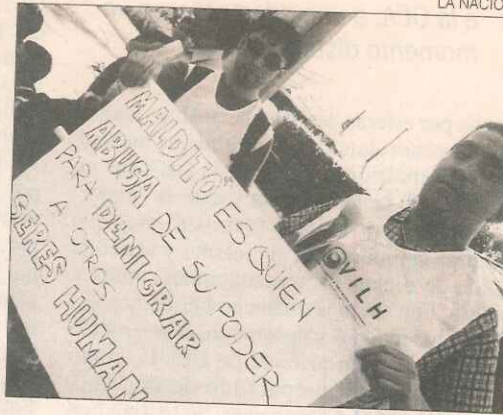 LA NACIO
MALDITO ES QUIEN
ABUSA DE SU PODER
PARA DENIGRAR
A OTROS
SERES HUMAN
OVILH